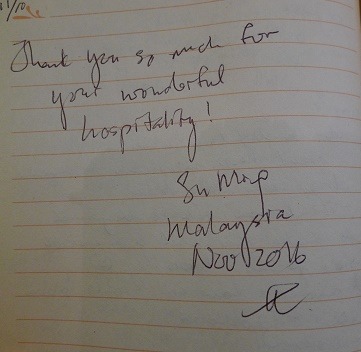 11/10
Thank you so much for
your wonderful
hospitality!
Su Ming
Malaysia
Nov 2016